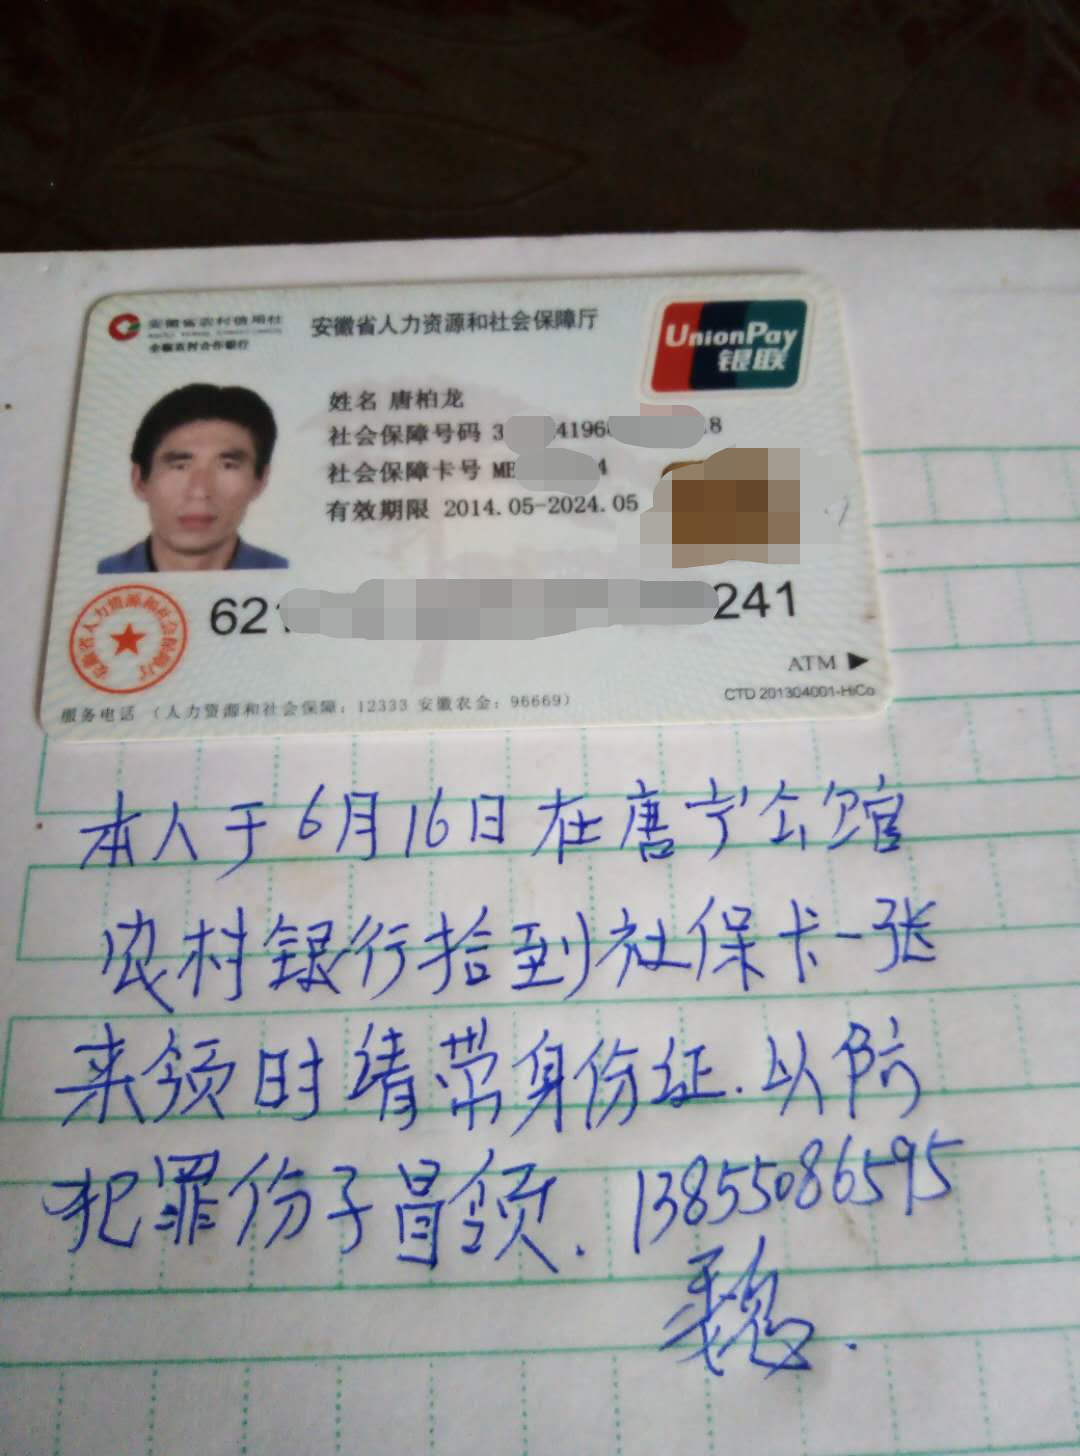 安徽省农村信用社
全椒农村合作银行
安徽省人力资源和社会保障厅
UnionPay
银联
姓名 唐柏龙
社会保障号码 3 4196 18
社会保障卡号 ME 4
有效期限 2014.05-2024.05
621 241
安徽省人力资源和社会保障厅
ATM ▶
CTD 201304001-HiCo
服务电话 (人力资源和社会保障: 12333 安徽农金: 96669)
本人于6月16日在唐宁公馆
农村银行拾到社保卡一张
来领时请带身份证.以防
犯罪份子冒领. 13855086595
魏.